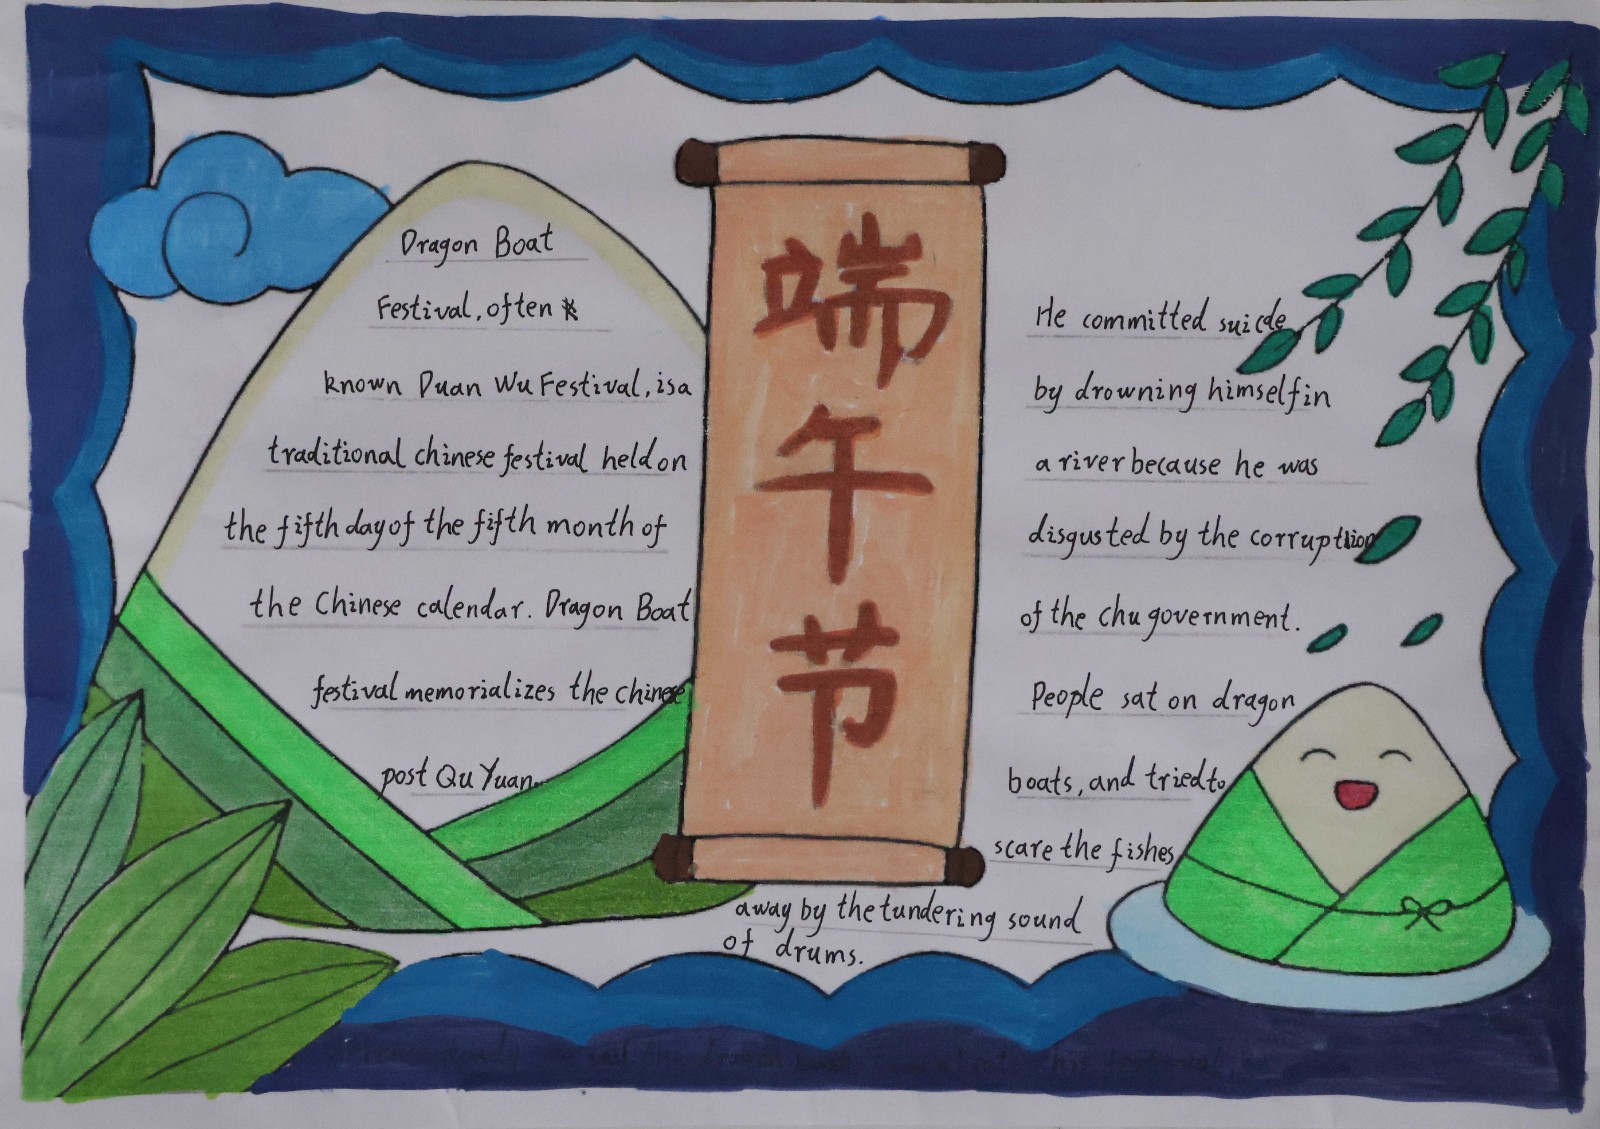 Dragon Boat
Festival, often
known Duan Wu Festival, is a
traditional chinese festival held on
the fifth day of the fifth month of
the Chinese calendar. Dragon Boat
festival memorializes the chinese
post Qu Yuan.
端
午
节
He committed suicde
by drowning himself in
a river because he was
disgusted by the corruption
of the chu government.
People sat on dragon
boats, and tried to
scare the fishes
away by the tundering sound
of drums.